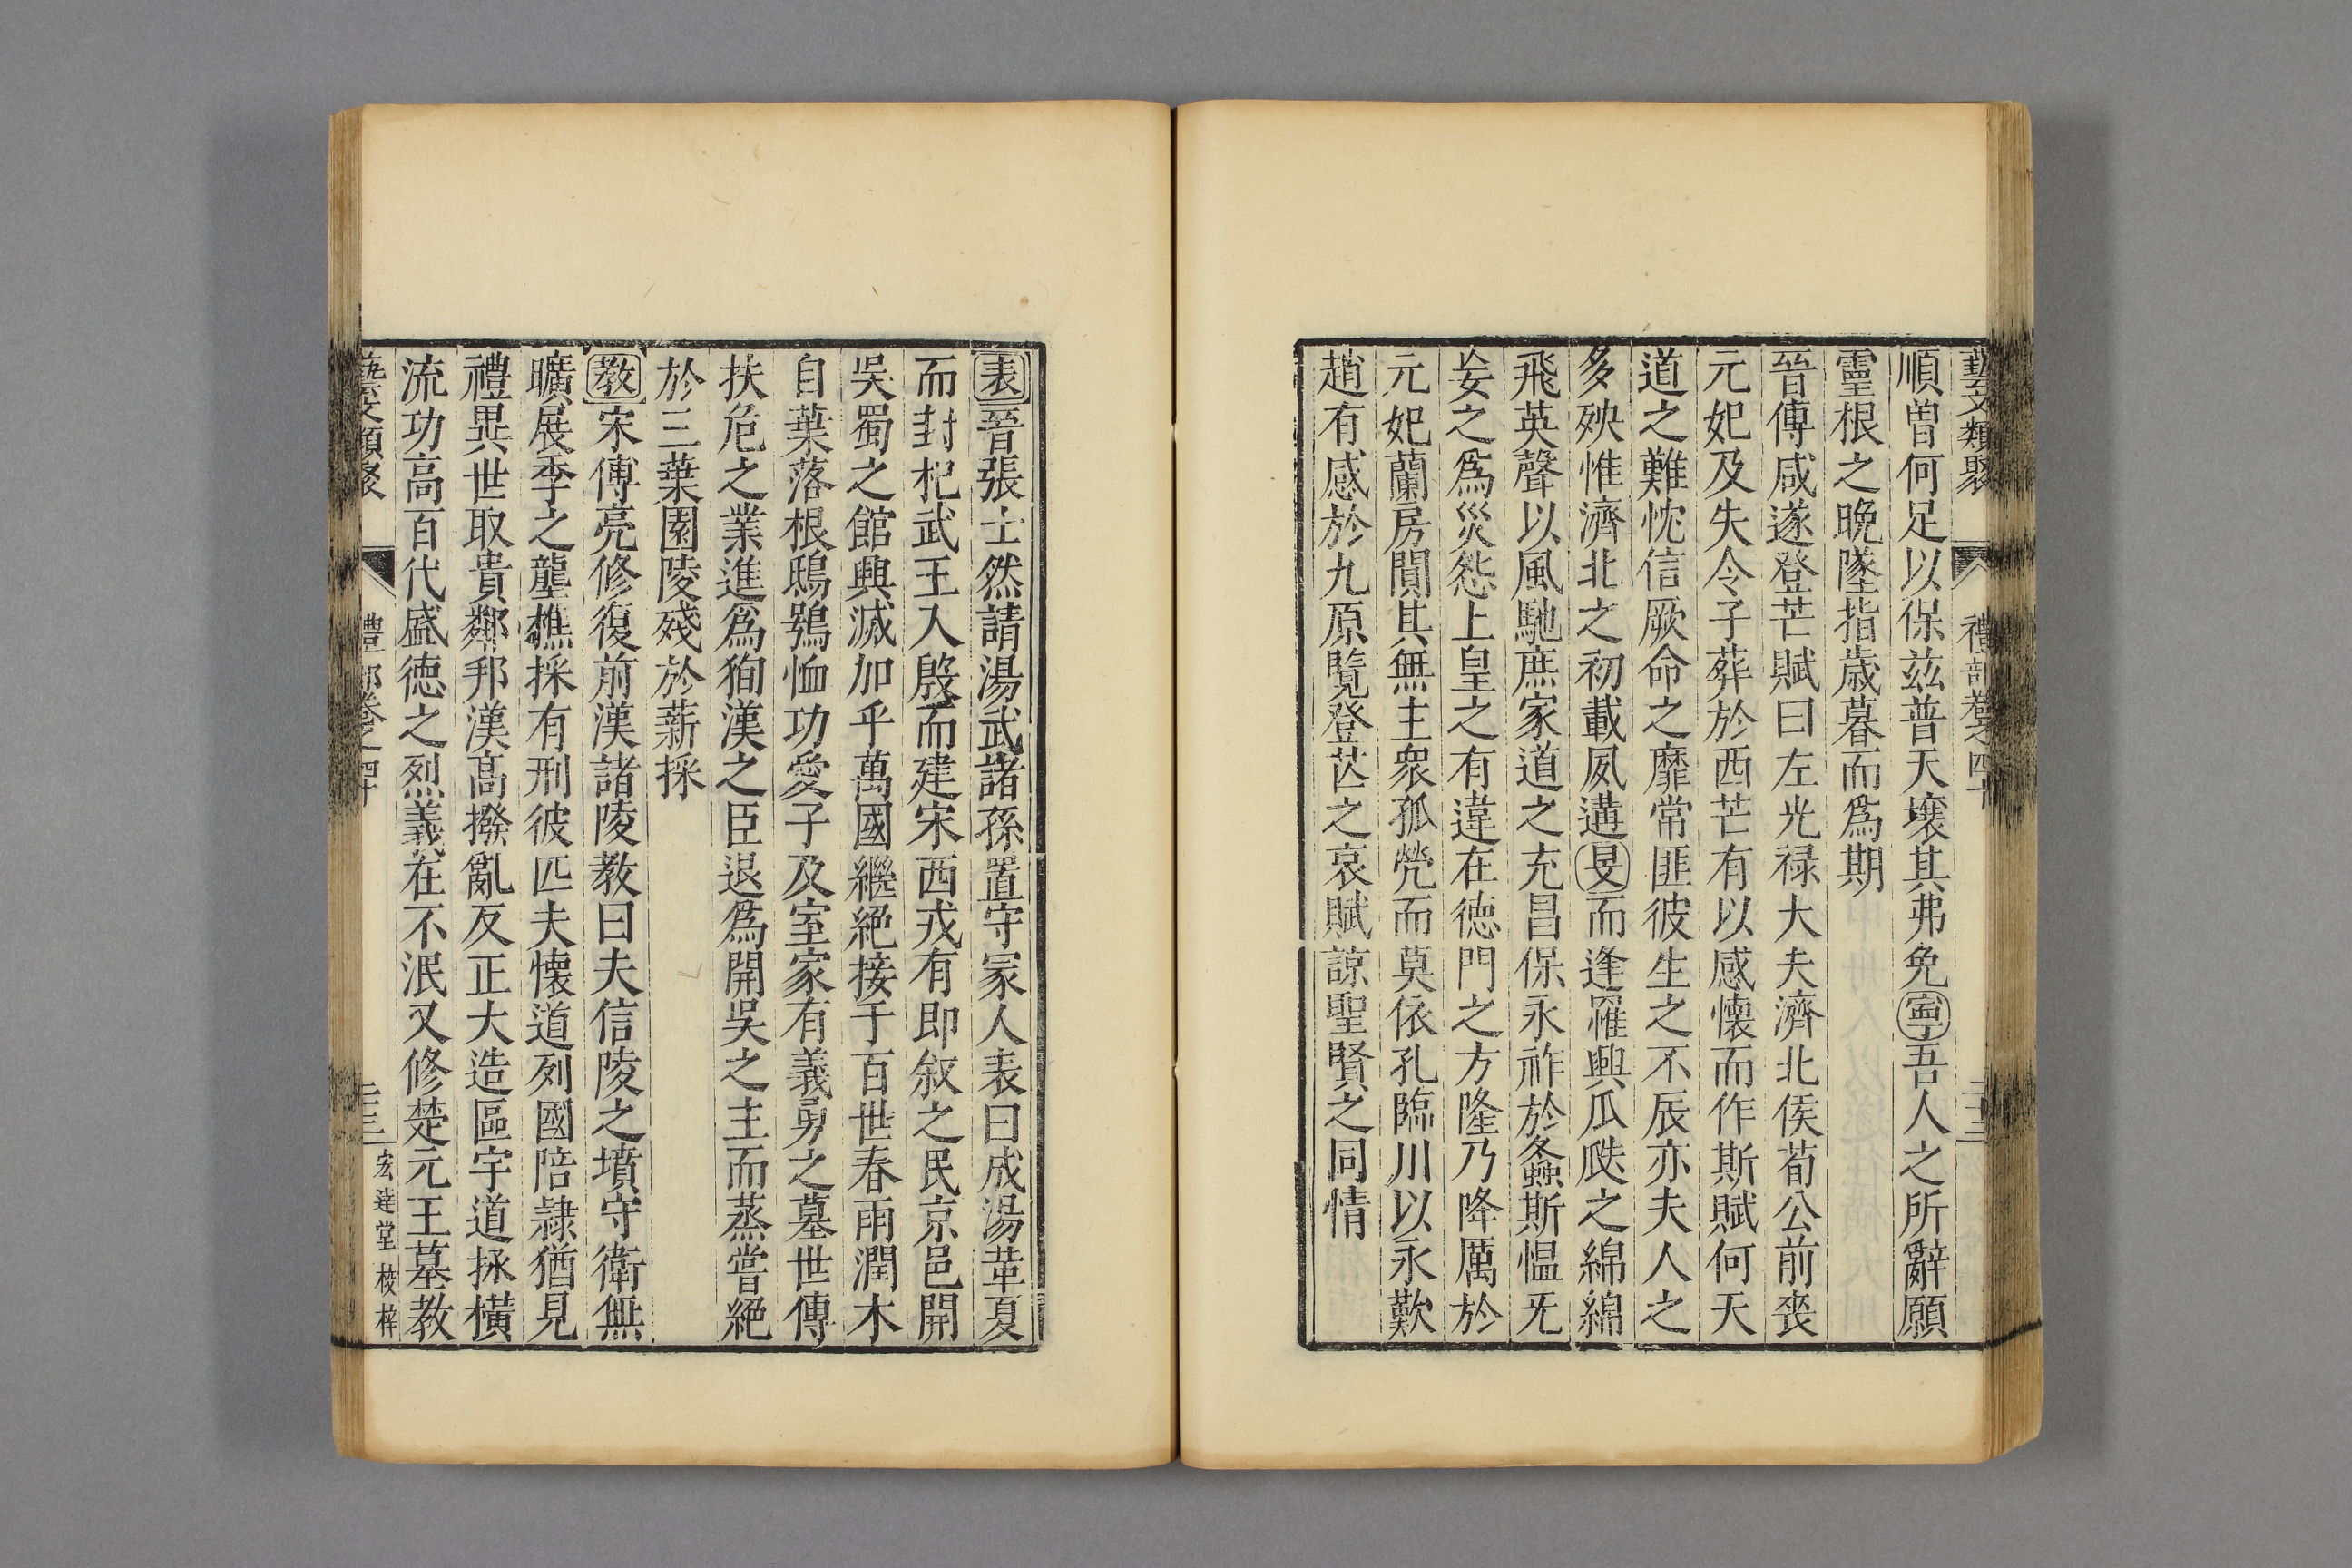 藝文類聚 禮部卷之四十 二十三
順曾何足以保兹普天壤其弗免寧吾人之所辭願
靈根之晚墜指歲暮而爲期
晉傅咸遂登芒賦曰左光禄大夫濟北侯荀公前喪
元妃及失令子葬於西芒有以感懷而作斯賦何天
道之難忱信厥命之靡常匪彼生之不辰亦夫人之
多殃惟濟北之初載夙遘旻而逢罹興瓜瓞之綿綿
飛英聲以風馳庶家道之充昌保永祚於螽斯愠旡
妄之爲災怨上皇之有違在德門之方隆乃降厲於
元妃蘭房閴其無主衆孤煢而莫依孔臨川以永歎
趙有感於九原覽登芒之哀賦諒聖賢之同情
表晉張士然請湯武諸孫置守冢人表曰成湯革夏
而封杞武王入殷而建宋西戎有即叙之民京邑開
吳蜀之館興滅加乎萬國繼絶接于百世春雨潤木
自葉落根鴟鴞恤功愛子及室家有義勇之墓世傳
扶危之業進爲狥漢之臣退爲開吳之主而蒸嘗絶
於三葉園陵殘於薪採
教宋傅亮修復前漢諸陵教曰夫信陵之墳守衛無
曠展季之壟樵採有刑彼匹夫懷道列國陪隷猶見
禮異世取貴鄰邦漢高撥亂反正大造區宇道拯橫
流功高百代盛德之烈義在不泯又修楚元王墓教
藝文類聚 禮部卷之四十 二十三 宏達堂校梓